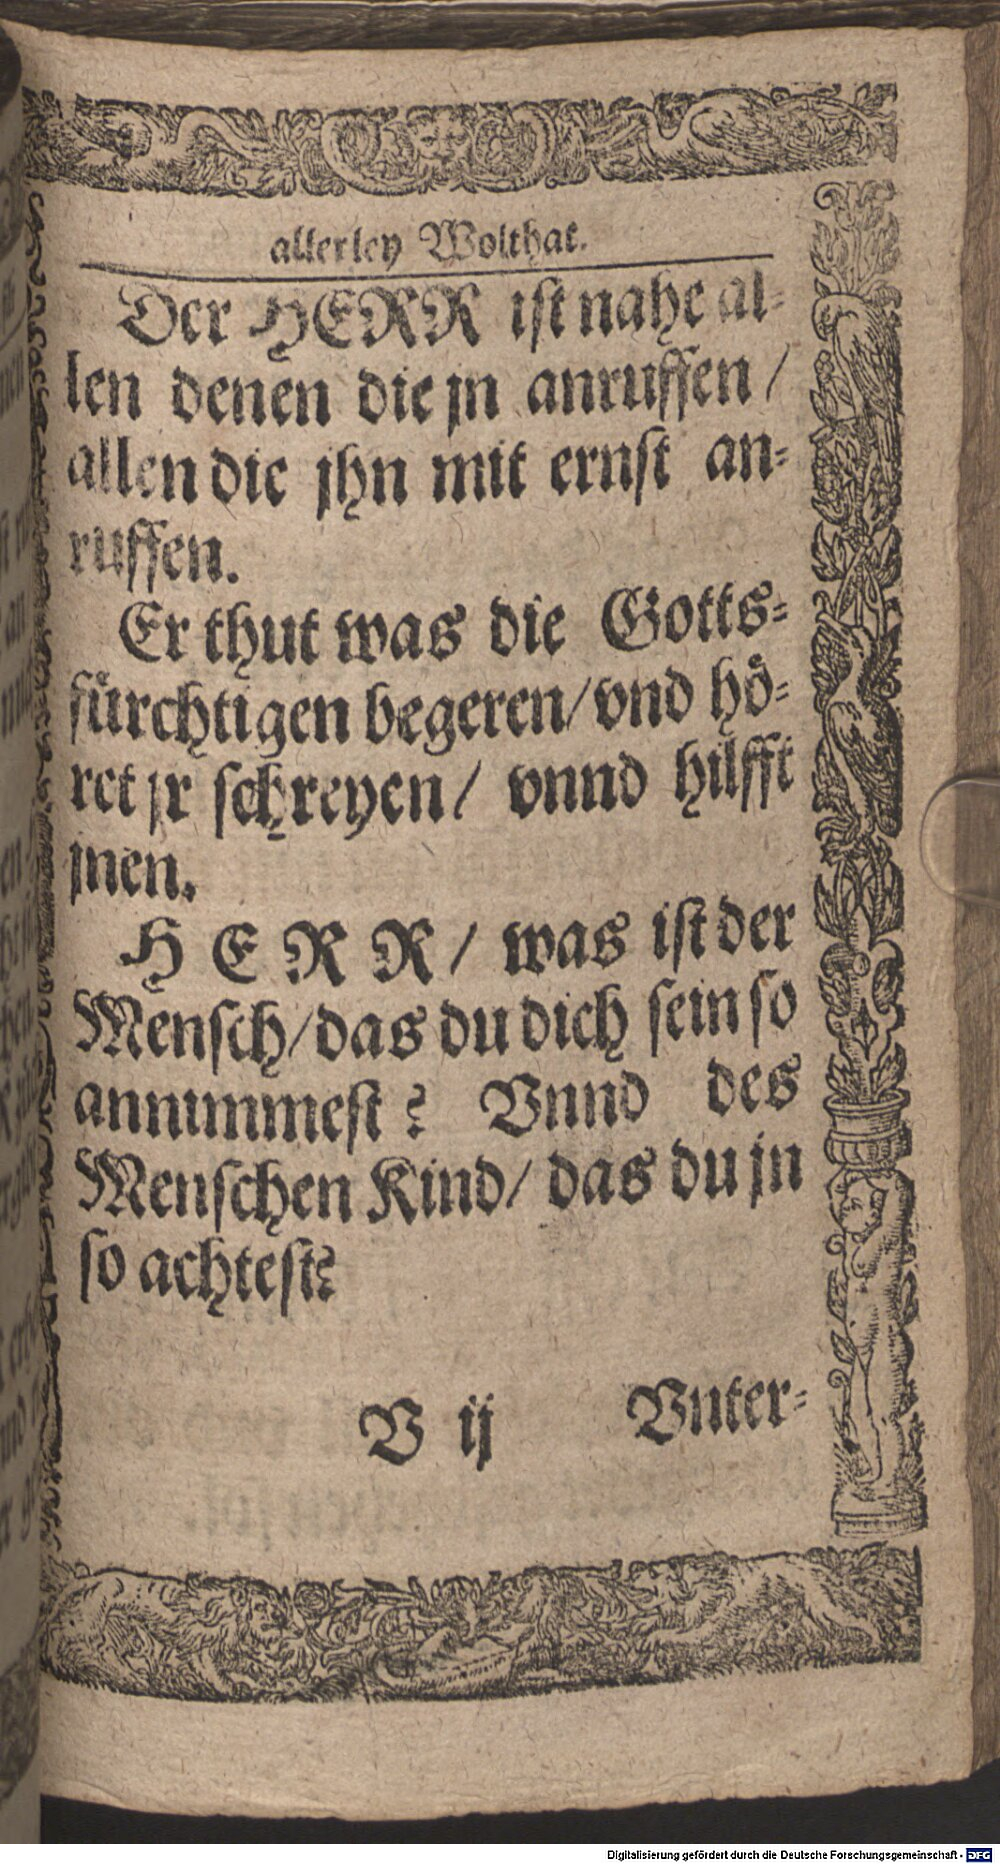 allerley Wolthat.
Der HERR ist nahe al-
len denen die jn anruffen /
allen die jhn mit ernst an-
ruffen.
Er thut was die Gotts-
fürchtigen begeren / vnd hö-
ret jr schreyen / vnnd hilfft
jnen.
HERR / was ist der
Mensch / das du dich sein so
annimmest? Vnnd des
Menschen Kind / das du jn
so achtest?
V ij Vnter-
Digitalisierung gefördert durch die Deutsche Forschungsgemeinschaft - DFG